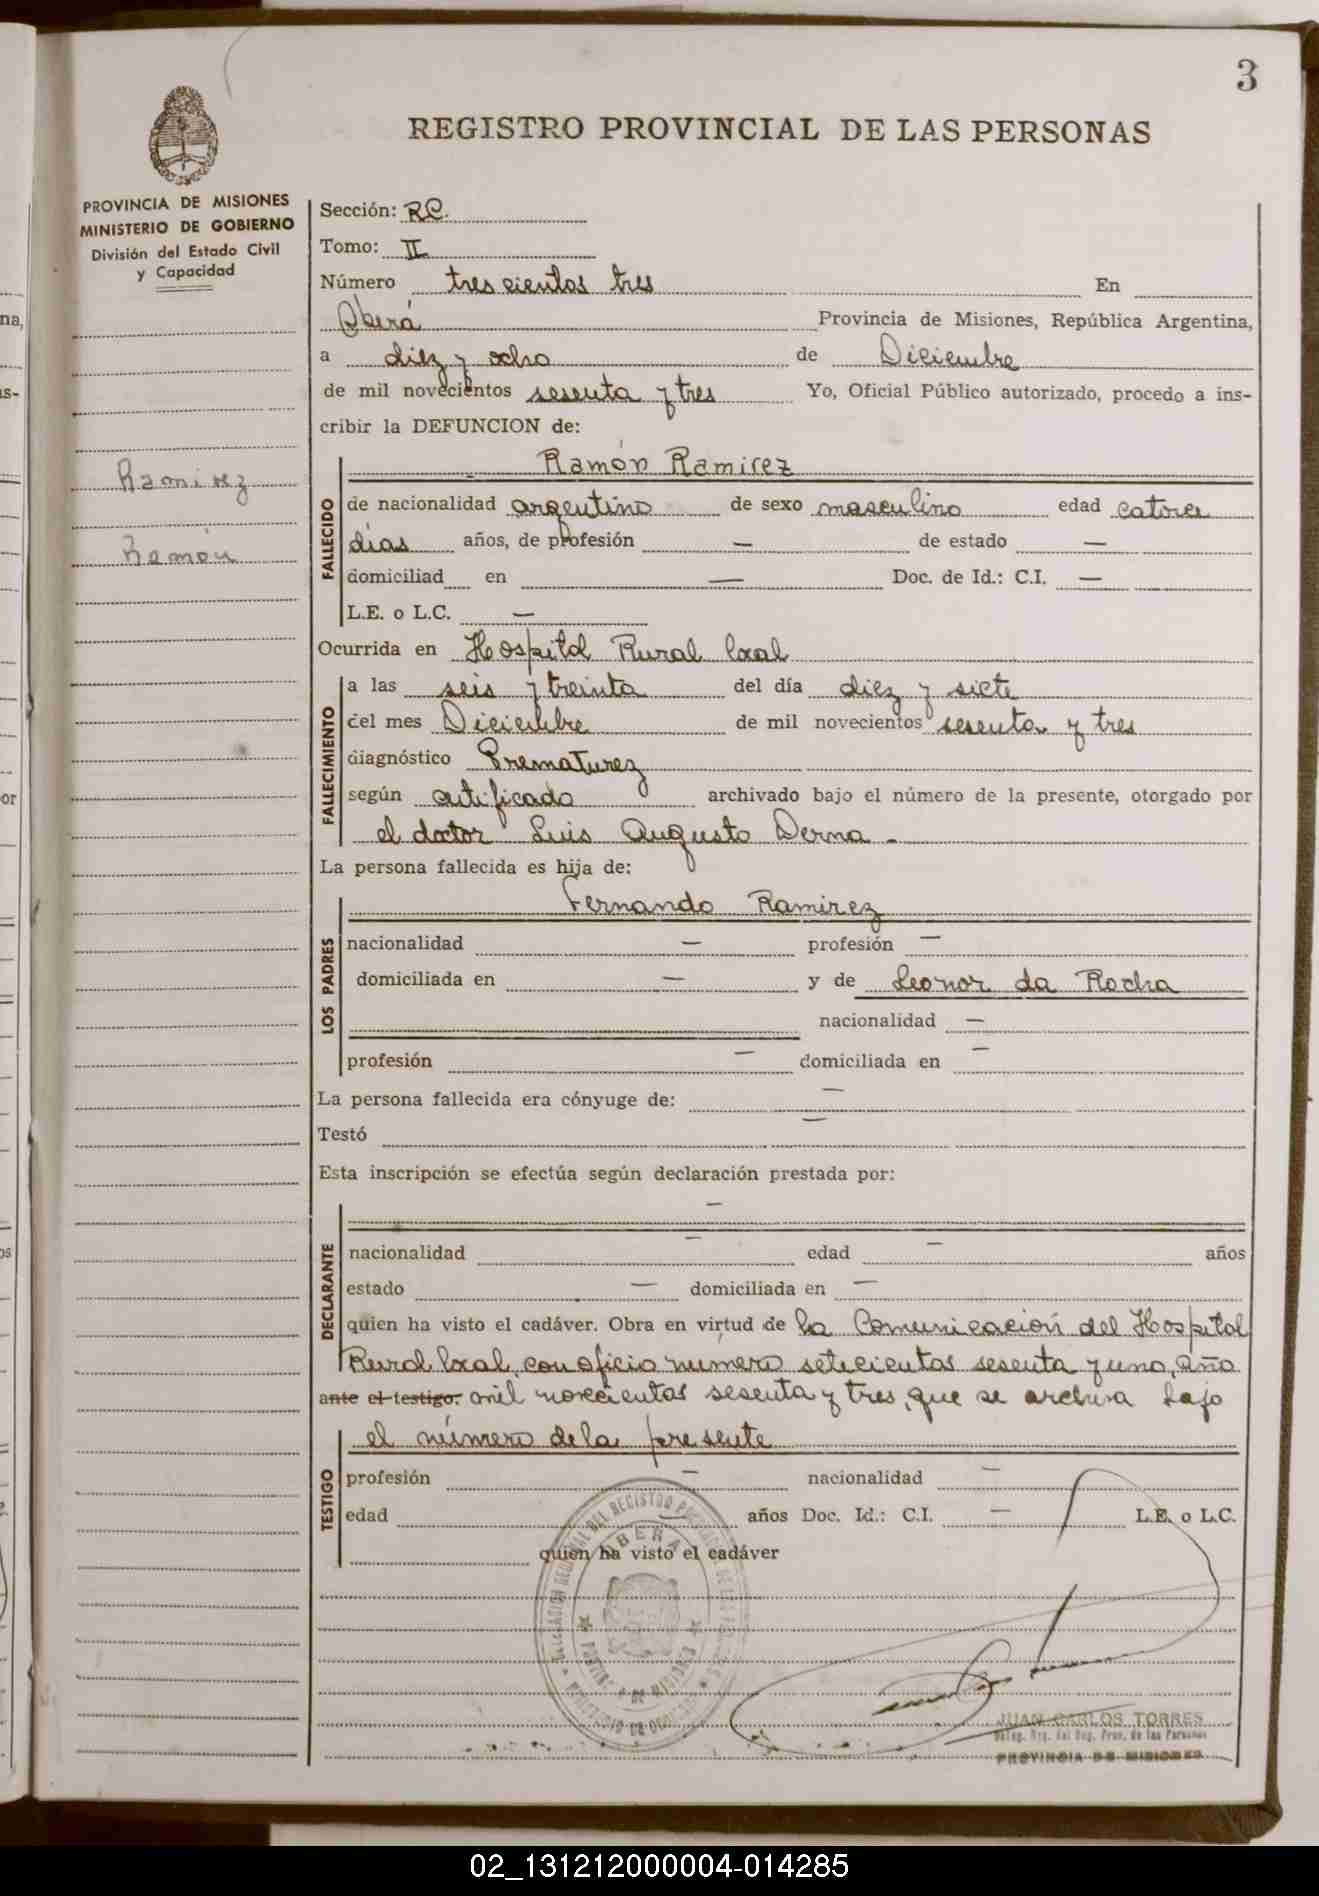 3
REGISTRO PROVINCIAL DE LAS PERSONAS
PROVINCIA DE MISIONES
MINISTERIO DE GOBIERNO
División del Estado Civil
y Capacidad
Ramirez
Ramón
Sección: RC.
Tomo: II
Número tres cientos tres En
Oberá Provincia de Misiones, República Argentina,
a diez y ocho de Diciembre
de mil novecientos sesenta y tres Yo, Oficial Público autorizado, procedo a ins-
cribir la DEFUNCION de:
Ramón Ramirez
FALLECIDO
de nacionalidad argentino de sexo masculino edad catorce
días años, de profesión — de estado —
domiciliad en — Doc. de Id.: C.I. —
L.E. o L.C. —
Ocurrida en Hospital Rural local
FALLECIMIENTO
a las seis y treinta del día diez y siete
del mes Diciembre de mil novecientos sesenta y tres
diagnóstico Prematurez
según certificado archivado bajo el número de la presente, otorgado por
el doctor Luis Augusto Derna -
La persona fallecida es hija de:
Fernando Ramirez
LOS PADRES
nacionalidad — profesión —
domiciliada en — y de Leonor da Rocha
nacionalidad —
profesión — domiciliada en —
La persona fallecida era cónyuge de: —
Testó —
Esta inscripción se efectúa según declaración prestada por:
—
DECLARANTE
nacionalidad — edad — años
estado — domiciliada en —
quien ha visto el cadáver. Obra en virtud de la Comunicación del Hospital
Rural local, con oficio numero setecientos sesenta y uno, año
ante el testigo. mil novecientos sesenta y tres, que se archiva bajo
el número de la presente
TESTIGO
profesión — nacionalidad —
edad — años Doc. Id.: C.I. — L.E. o L.C.
quien ha visto el cadáver
DELEGACION REGIONAL DEL REGISTRO PROVINCIAL DE LAS PERSONAS
OBERA
PROVINCIA DE MISIONES
MINISTERIO DE GOBIERNO
JUAN CARLOS TORRES
Deleg. Reg. del Reg. Prov. de las Personas
PROVINCIA DE MISIONES
02_131212000004-014285